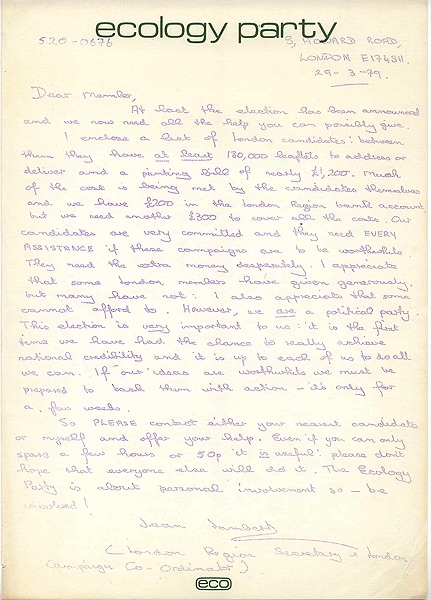 ecology party
520-0676
3, HOWARD ROAD,
LONDON E17 4SH.
29-3-79.
Dear Member,
At last the election has been announced
and we now need all the help you can possibly give.
I enclose a list of London candidates: between
them they have at least 130,000 leaflets to address or
deliver and a printing bill of nearly £1,200. Much
of the cost is being met by the candidates themselves
and we have £200 in the London Region bank account
but we need another £300 to cover all the costs. Our
candidates are very committed and they need EVERY
ASSISTANCE if these campaigns are to be worthwhile.
They need the extra money desperately. I appreciate
that some London members have given generously,
but many have not: I also appreciate that some
cannot afford to. However, we are a political party.
This election is very important to us: it is the first
time we have had the chance to really achieve
national credibility and it is up to each of us to do all
we can. If our ideas are worthwhile we must be
prepared to back them with action - it's only for
a few weeks.
So PLEASE contact either your nearest candidate
or myself and offer your help. Even if you can only
spare a few hours or 50p it is useful: please don't
hope that everyone else will do it. The Ecology
Party is about personal involvement so - be
involved!
Jean Lambert
(London Region Secretary & London
Campaign Co-Ordinator)
eco